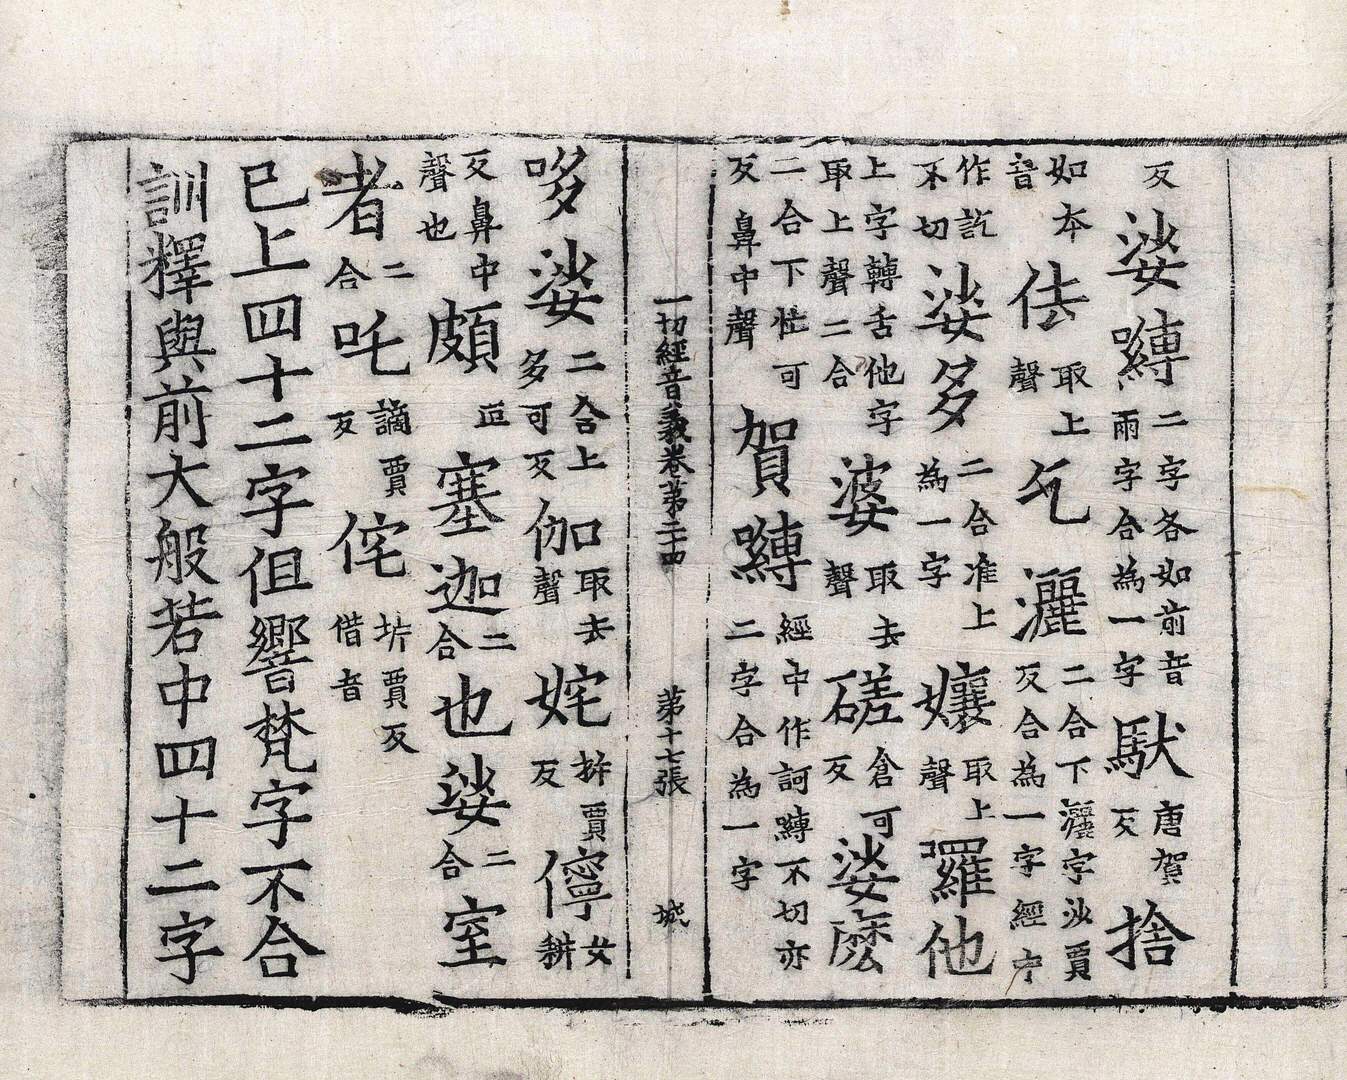 反娑嚩二字各如前音兩字合為一字馱唐賀反捨
如本音佉取上聲乞灑二合下灑字沙賈反合為一字經中
作訖不切娑多二合准上為一字孃取上聲囉他
上字轉舌他字取上聲二合婆取去聲磋倉可反娑麼
二合下牤可反鼻中聲賀嚩經中作訶嚩不切亦二字合為一字
一切經音義卷第二十四 第十七張 城
哆娑二合上多可反伽加取去聲姹拆賈反儜女耕
反鼻中聲也頗正塞迦二合也娑二合室
者二合吒謫賈反侘坼賈反借音
已上四十二字但響梵字不合
訓釋與前大般若中四十二字